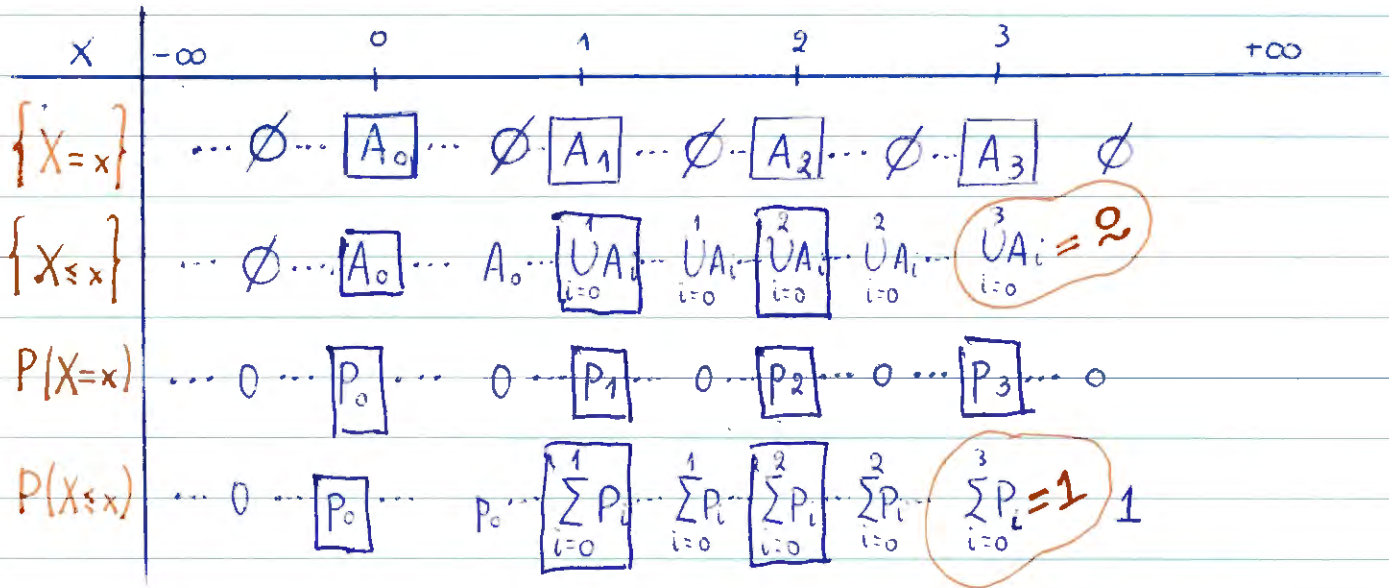 X -∞ 0 1 2 3 +∞
{X=x} ... ∅ ... A₀ ... ∅ ... A₁ ... ∅ ... A₂ ... ∅ ... A₃ ∅
{X≤x} ... ∅ ... A₀ ... A₀ ... ⋃_{i=0}^{1} A_i ... ⋃_{i=0}^{1} A_i ... ⋃_{i=0}^{2} A_i ... ⋃_{i=0}^{2} A_i ... ⋃_{i=0}^{3} A_i =
P(X=x) ... 0 ... P₀ ... 0 ... P₁ ... 0 ... P₂ ... 0 ... P₃ ... 0
P(X≤x) ... 0 ... P₀ ... p₀ ... ∑_{i=0}^{1} P_i ... ∑_{i=0}^{1} P_i ... ∑_{i=0}^{2} P_i ... ∑_{i=0}^{2} P_i ... ∑_{i=0}^{3} P_i = 1 1